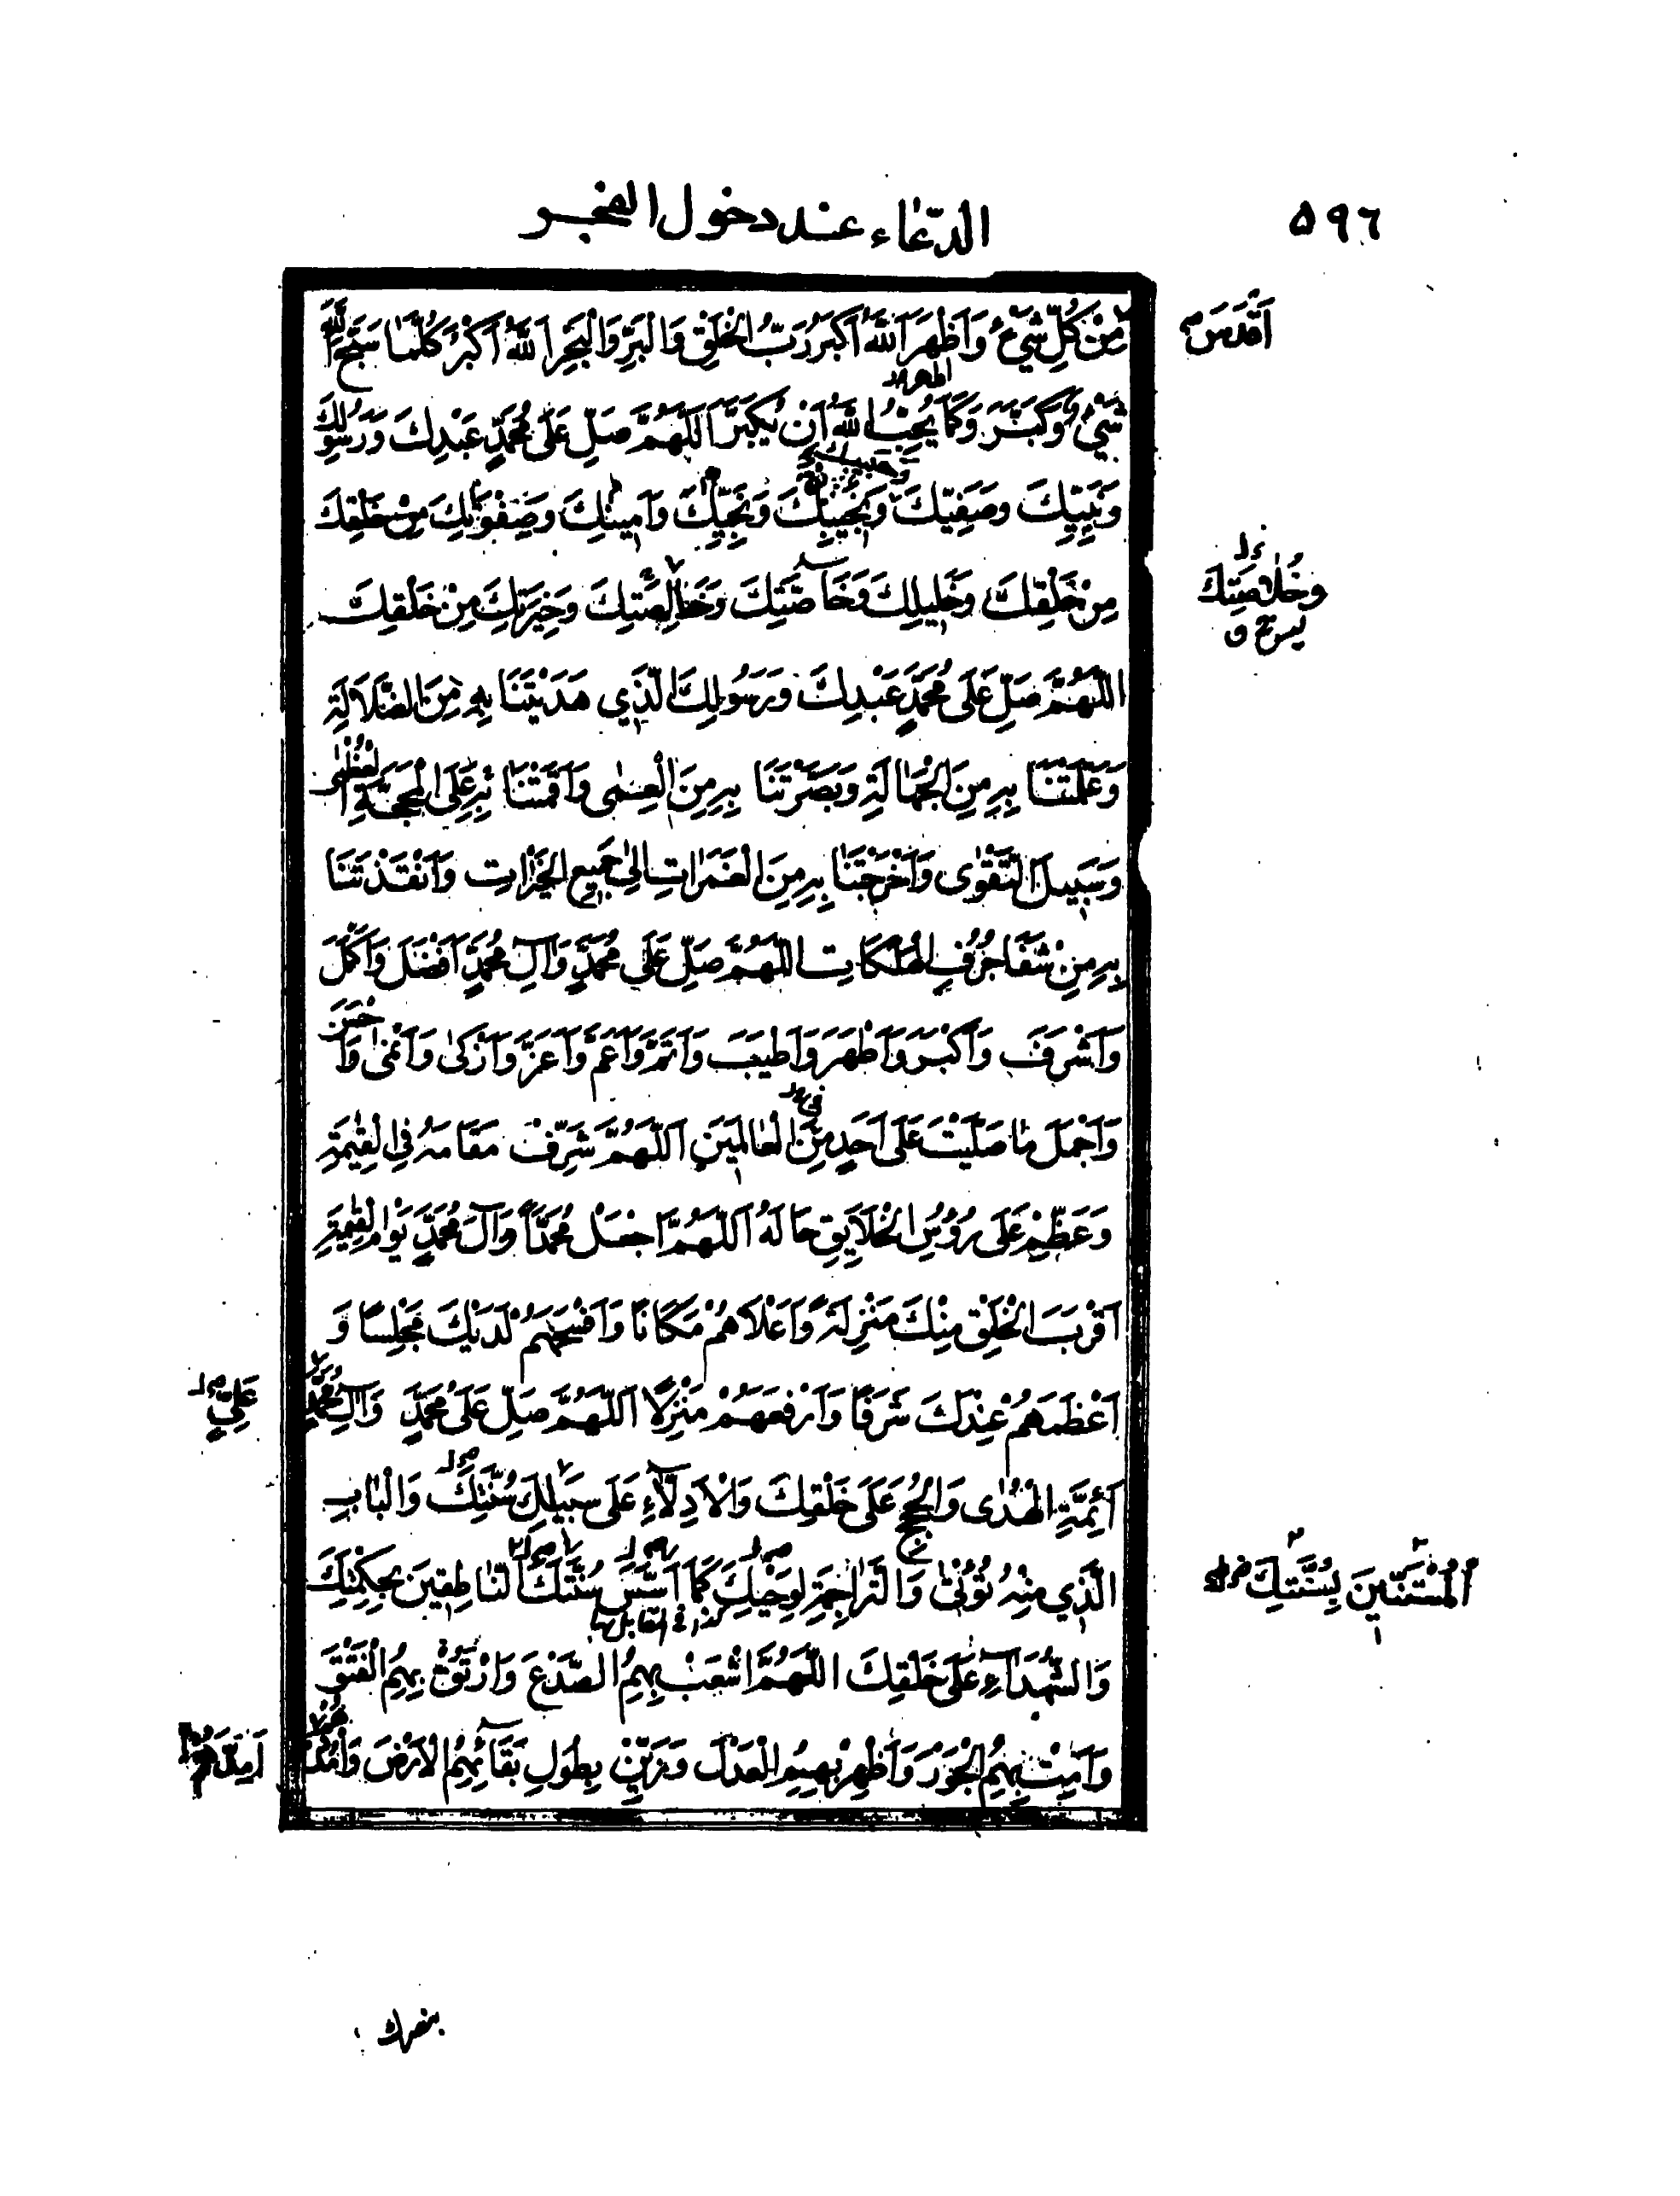 ٥٩٦
الدّعاء عند دخول الفجر
مِنْ كُلِّ شَيْءٍ وَاَظْهَرَ اَللّٰهُ اَكْبَرُ رَبُّ الْخَلْقِ وَالْبَرِّ وَالْبَحْرِ اَللّٰهُ اَكْبَرُ كُلَّمَا سَبَّحَ اللّٰهَ
اَقْدَسَ
شَيْءٌ وَكَبَّرَ وَكَمَا يُحِبُّ اللّٰهُ اَنْ يُكَبَّرَ اَللّٰهُمَّ صَلِّ عَلٰى مُحَمَّدٍ عَبْدِكَ وَرَسُولِكَ
وَنَبِيِّكَ وَصَفِيِّكَ وَنَجِيبِكَ وَنَجِيِّكَ وَاَمِينِكَ وَصِفْوَتِكَ مِنْ خَلْقِكَ
وَحَبِيبِكَ
مِنْ خَلْقِكَ وَخَلِيلِكَ وَخَاصَّتِكَ وَخَالِصَتِكَ وَخِيَرَتِكَ مِنْ خَلْقِكَ
وَخُلَاصَتِكَ
اَللّٰهُمَّ صَلِّ عَلَى مُحَمَّدٍ عَبْدِكَ وَرَسُولِكَ الَّذِي هَدَيْتَنَا بِهِ مِنَ الضَّلَالَةِ
وَعَلَّمْتَنَا بِهِ مِنَ الْجَهَالَةِ وَبَصَّرْتَنَا بِهِ مِنَ الْعِمٰى وَاَقَمْتَنَا بِهِ عَلَى الْمَحَجَّةِ الْعُظْمٰى
وَسَبِيلَ التَّقْوٰى وَاَخْرَجْتَنَا بِهِ مِنَ الْغَمَرَاتِ اِلٰى جَمِيعِ الْخَيْرَاتِ وَاَنْقَذْتَنَا
بِهِ مِنْ شَفَا جُرُفِ الْهَلَكَاتِ اَللّٰهُمَّ صَلِّ عَلَى مُحَمَّدٍ وَآلِ مُحَمَّدٍ اَفْضَلَ وَاَكْمَلَ
وَاَشْرَفَ وَاَكْبَرَ وَاَطْهَرَ وَاَطْيَبَ وَاَتَمَّ وَاَعَمَّ وَاَعَزَّ وَاَزْكٰى وَاَنْمٰى وَاَحْسَنَ
وَاَجْمَلَ مَا صَلَّيْتَ عَلَى اَحَدٍ مِنَ الْعَالَمِينَ اَللّٰهُمَّ شَرِّفْ مَقَامَهُ فِي الْقِيٰمَةِ
وَعَظِّمْ عَلَى رُؤُسِ الْخَلَايِقِ حَالَهُ اَللّٰهُمَّ اجْعَلْ مُحَمَّدًا وَآلَ مُحَمَّدٍ يَوْمَ الْقِيٰمَةِ
اَقْرَبَ الْخَلْقِ مِنْكَ مَنْزِلَةً وَاَعْلَاهُمْ مَكَانًا وَاَفْسَحَهُمْ لَدَيْكَ مَجْلِسًا وَ
اَعْظَمَهُمْ عِنْدَكَ شَرَفًا وَاَرْفَعَهُمْ مَنْزِلًا اَللّٰهُمَّ صَلِّ عَلَى مُحَمَّدٍ وَآلِ مُحَمَّدٍ
عَلِيٍّ
اَئِمَّةِ الْهُدٰى وَالْحُجَجِ عَلَى خَلْقِكَ وَالْاَدِلَّاءِ عَلَى سَبِيلِكَ سُنَّتِكَ وَالْبَابِ
الَّذِي مِنْهُ تُؤْتٰى وَالتَّرَاجِمَةِ لِوَحْيِكَ كَمَا اَسَّسَ سُنَّتَكَ النَّاطِقِينَ بِحِكْمَتِكَ
الْمُسْتَنِّينَ بِسُنَّتِكَ
وَالشُّهَدَاءِ عَلَى خَلْقِكَ اَللّٰهُمَّ اشْعَبْ بِهِمُ الصَّدْعَ وَارْتُقْ بِهِمُ الْفَتْقَ
وَاَمِتْ بِهِمُ الْجَوْرَ وَاَظْهِرْ بِهِمُ الْعَدْلَ وَزَيِّنْ بِطُولِ بَقَائِهِمُ الْاَرْضَ
بنصرك